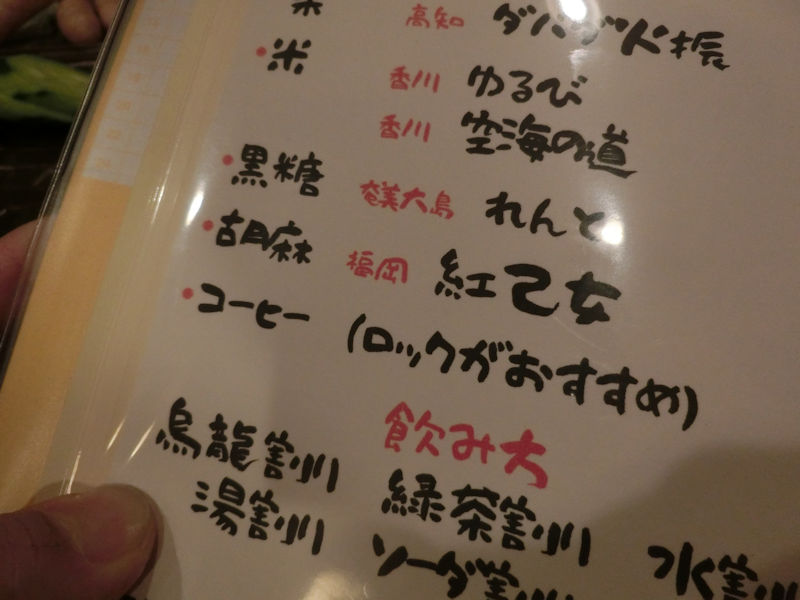 高知 ダバダ火振
•米 香川 ゆるび
香川 空海の道
•黒糖 奄美大島 れんと
•胡麻 福岡 紅乙女
•コーヒー (ロックがおすすめ)
飲み方
烏龍割り 緑茶割り 水割
湯割り ソーダ割り